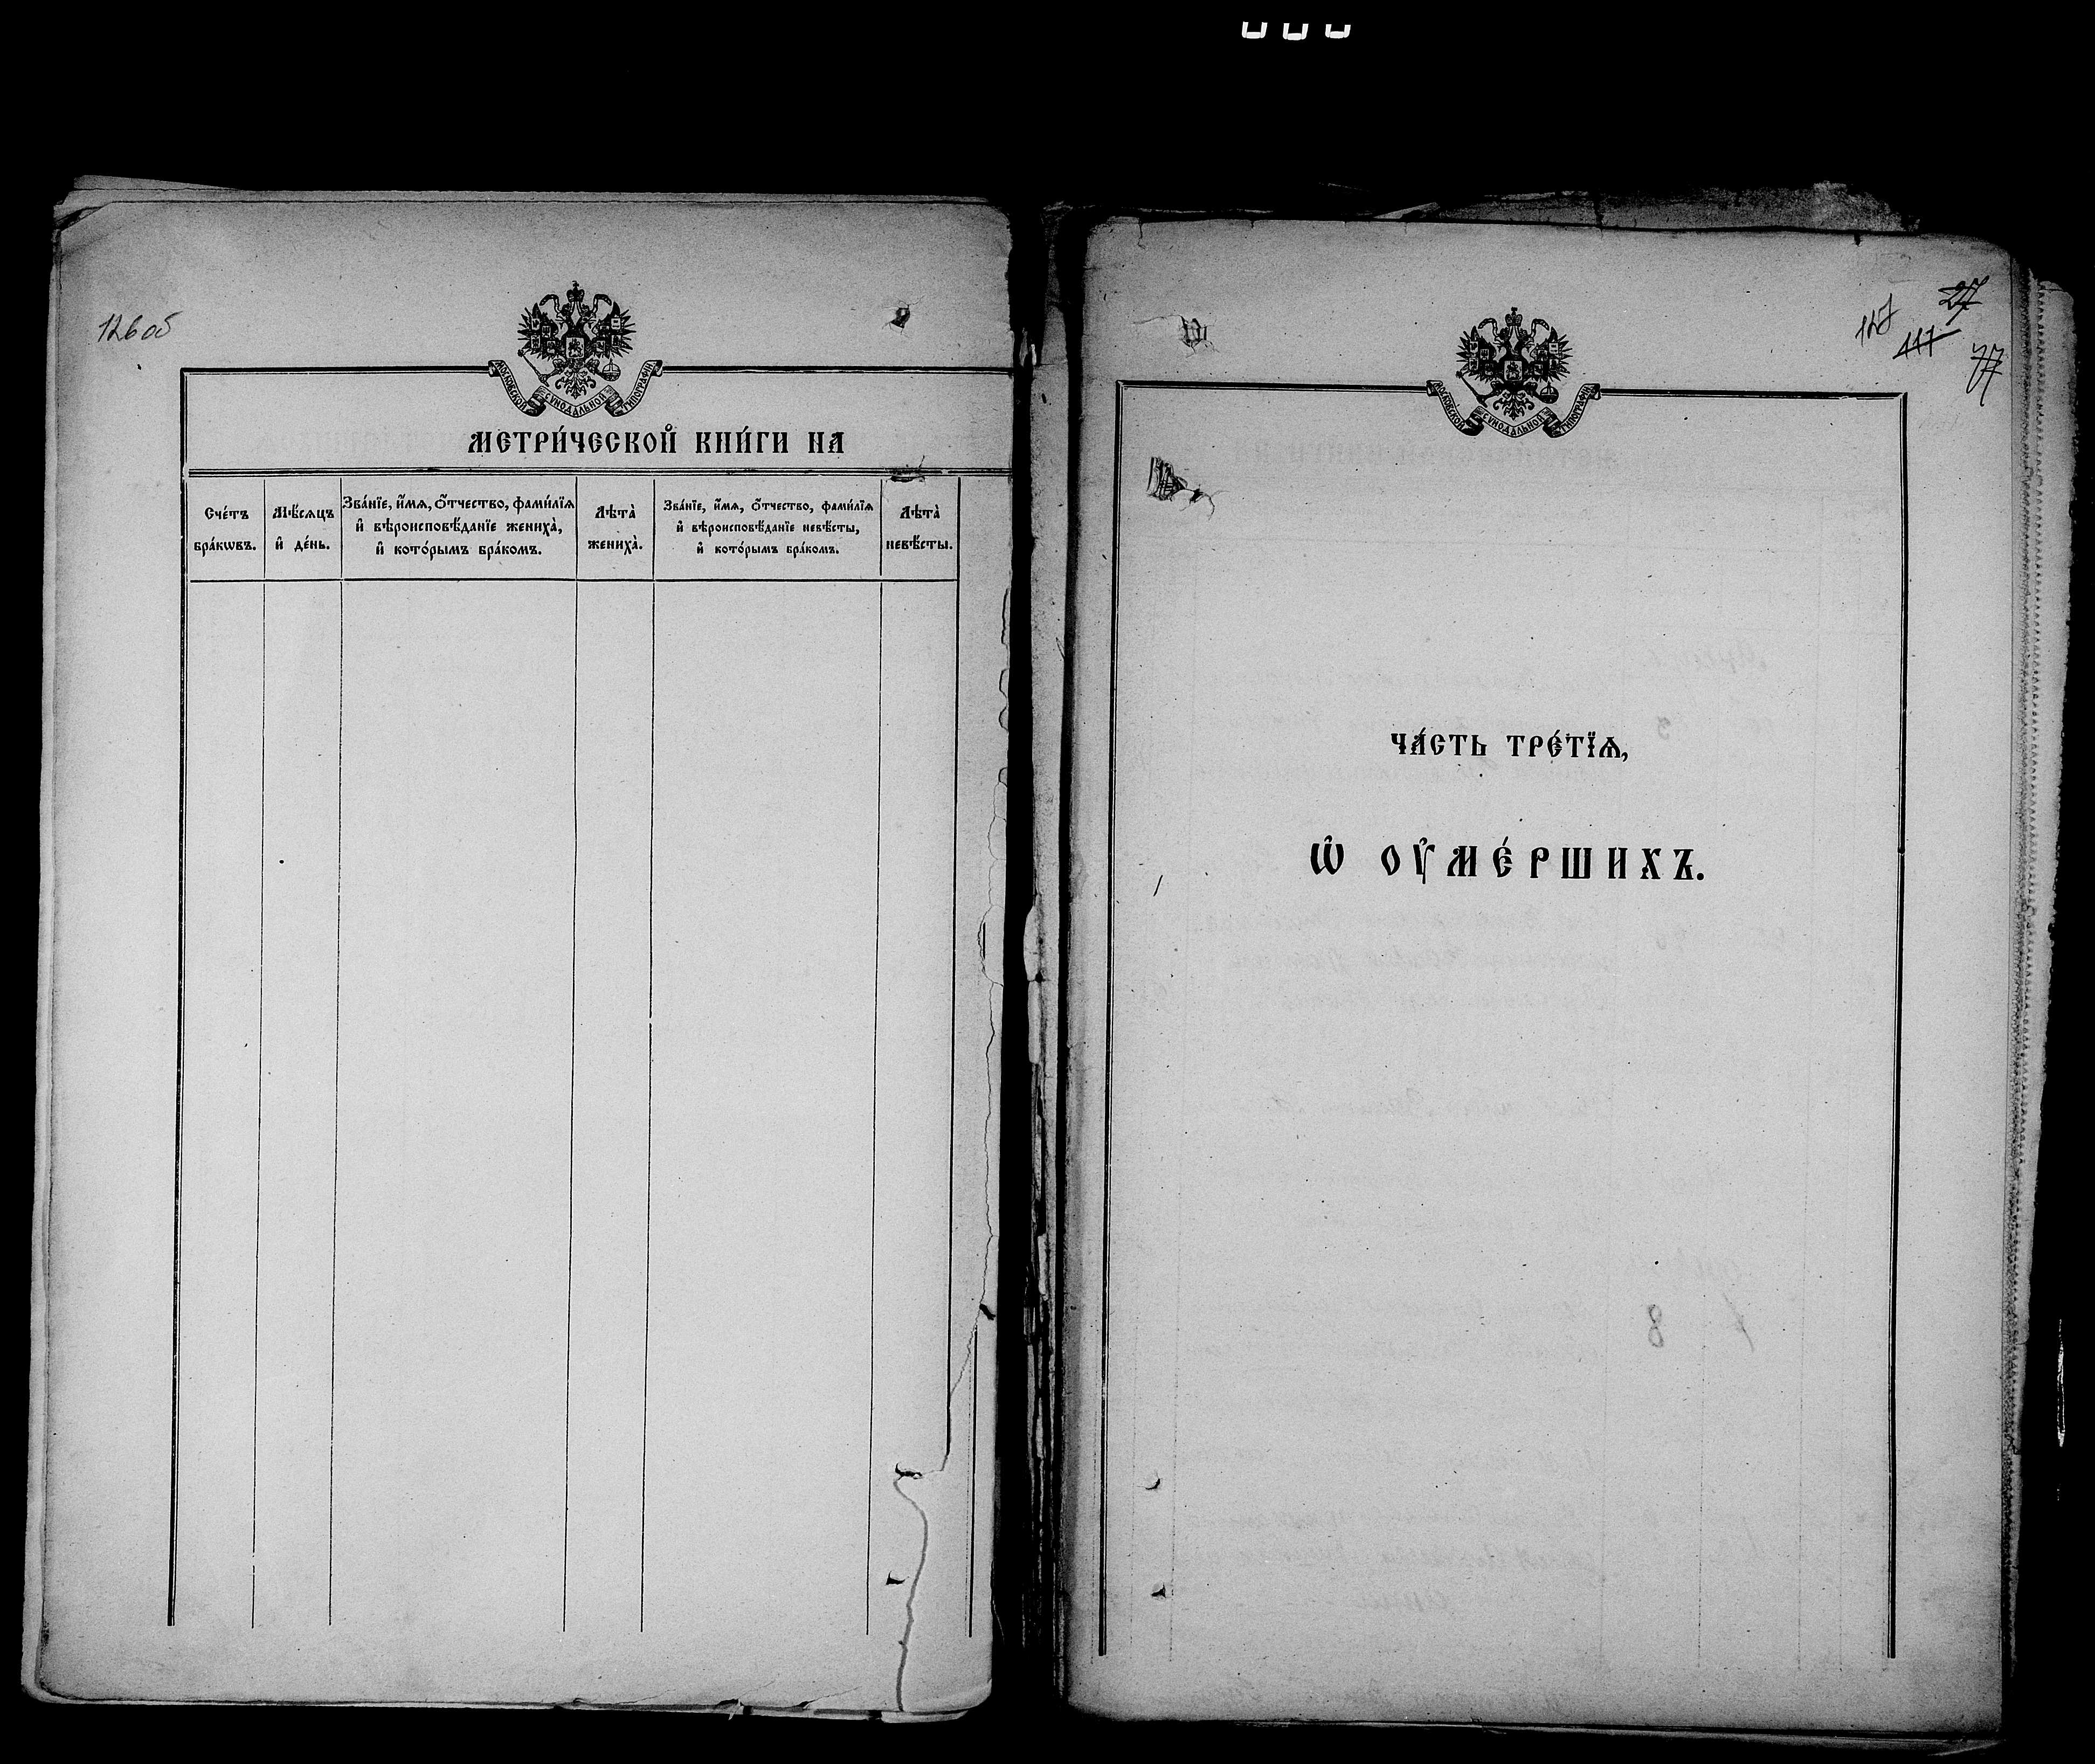 126 об
МОСКОВСКОЙ СѴНОДАЛЬНОЙ ТИПОГРАФІИ
МЕТРИ́ЧЕСКОЙ КНИ́ГИ НА
Сче́тъ
бра́кѡвъ.
Мѣ́сѧцъ
и҆ де́нь.
Зва́нїе, и҆́мѧ, ѻ҆́тчество, фами́лїѧ
и҆ вѣроисповѣ́данїе жениха̀,
и҆ кото́рымъ бра́комъ.
Лѣта̀
жениха̀.
Зва́нїе, и҆́мѧ, ѻ҆́тчество, фами́лїѧ
и҆ вѣроисповѣ́данїе невѣ́сты,
и҆ кото́рымъ бра́комъ.
Лѣта̀
невѣ́сты.
27
127
117
77
МОСКОВСКОЙ СѴНОДАЛЬНОЙ ТИПОГРАФІИ
ЧА́СТЬ ТРЕ́ТЇѦ,
Ѡ҆ ОУ҆МЕ́РШИХЪ.